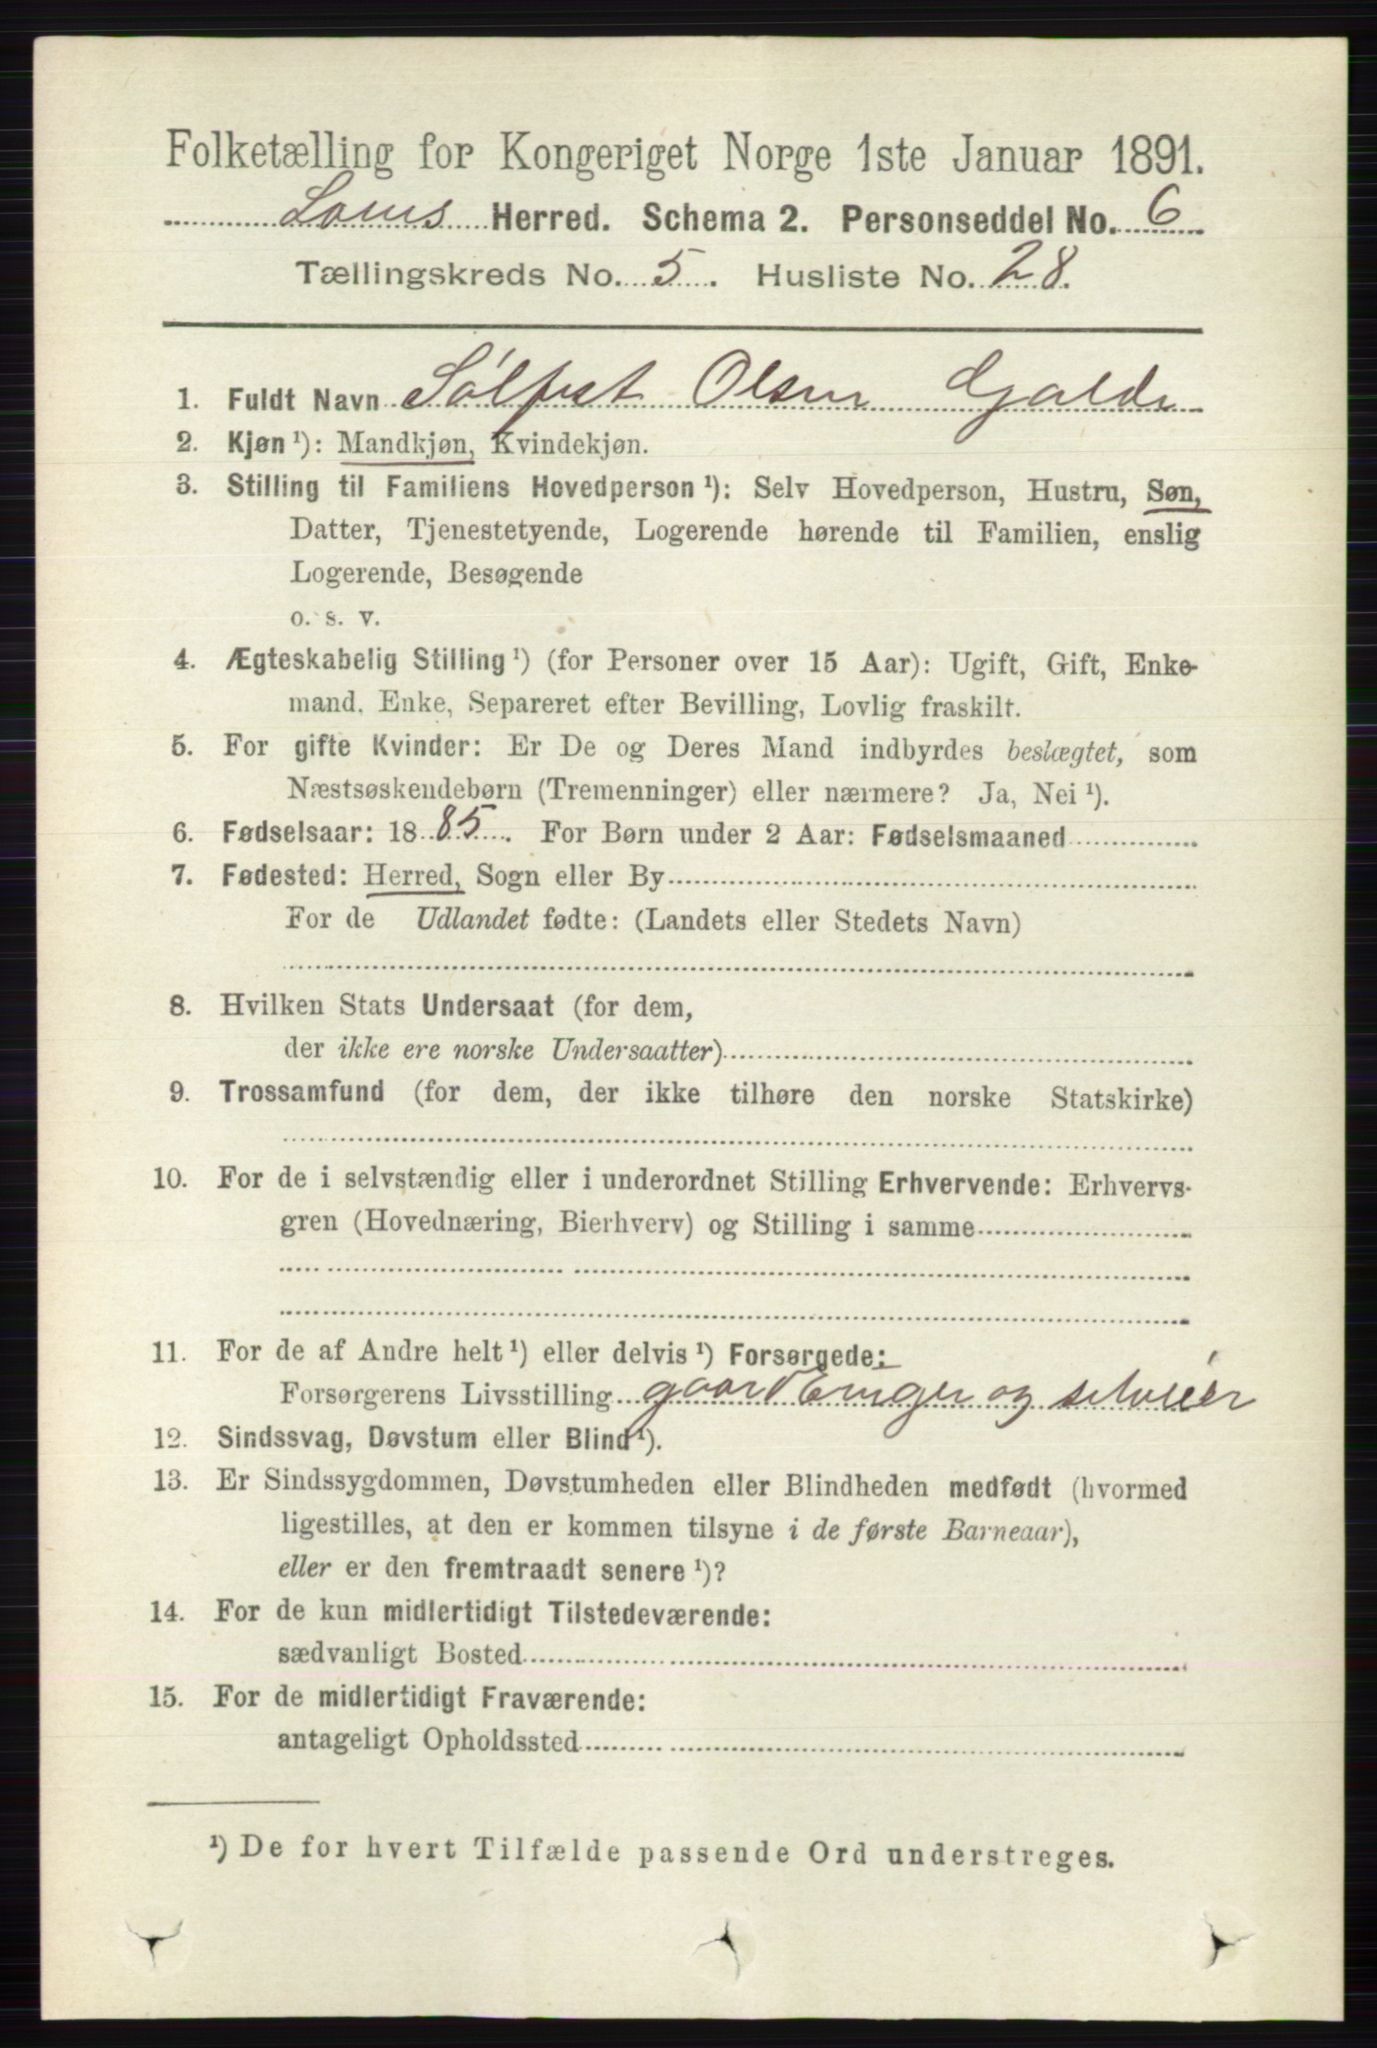 Folketælling for Kongeriget Norge 1ste Januar 1891.
Loms Herred. Schema 2. Personseddel No. 6
Tællingskreds No. 5. Husliste No. 28.
1. Fuldt Navn Sølfest Olsen Galde
2. Kjøn ¹): Mandkjøn, Kvindekjøn.
3. Stilling til Familiens Hovedperson ¹): Selv Hovedperson, Hustru, Søn,
Datter, Tjenestetyende, Logerende hørende til Familien, enslig
Logerende, Besøgende
o. s. v.
4. Ægteskabelig Stilling ¹) (for Personer over 15 Aar): Ugift, Gift, Enke-
mand, Enke, Separeret efter Bevilling, Lovlig fraskilt.
5. For gifte Kvinder: Er De og Deres Mand indbyrdes beslægtet, som
Næstsøskendebørn (Tremenninger) eller nærmere? Ja, Nei ¹).
6. Fødselsaar: 1885. For Børn under 2 Aar: Fødselsmaaned
7. Fødested: Herred, Sogn eller By
For de Udlandet fødte: (Landets eller Stedets Navn)
8. Hvilken Stats Undersaat (for dem,
der ikke ere norske Undersaatter)
9. Trossamfund (for dem, der ikke tilhøre den norske Statskirke)
10. For de i selvstændig eller i underordnet Stilling Erhvervende: Erhvervs-
gren (Hovednæring, Bierhverv) og Stilling i samme
11. For de af Andre helt ¹) eller delvis ¹) Forsørgede:
Forsørgerens Livsstilling gaardbruger og selveier
12. Sindssvag, Døvstum eller Blind ¹).
13. Er Sindssygdommen, Døvstumheden eller Blindheden medfødt (hvormed
ligestilles, at den er kommen tilsyne i de første Barneaar),
eller er den fremtraadt senere ¹)?
14. For de kun midlertidigt Tilstedeværende:
sædvanligt Bosted
15. For de midlertidigt Fraværende:
antageligt Opholdssted
¹) De for hvert Tilfælde passende Ord understreges.